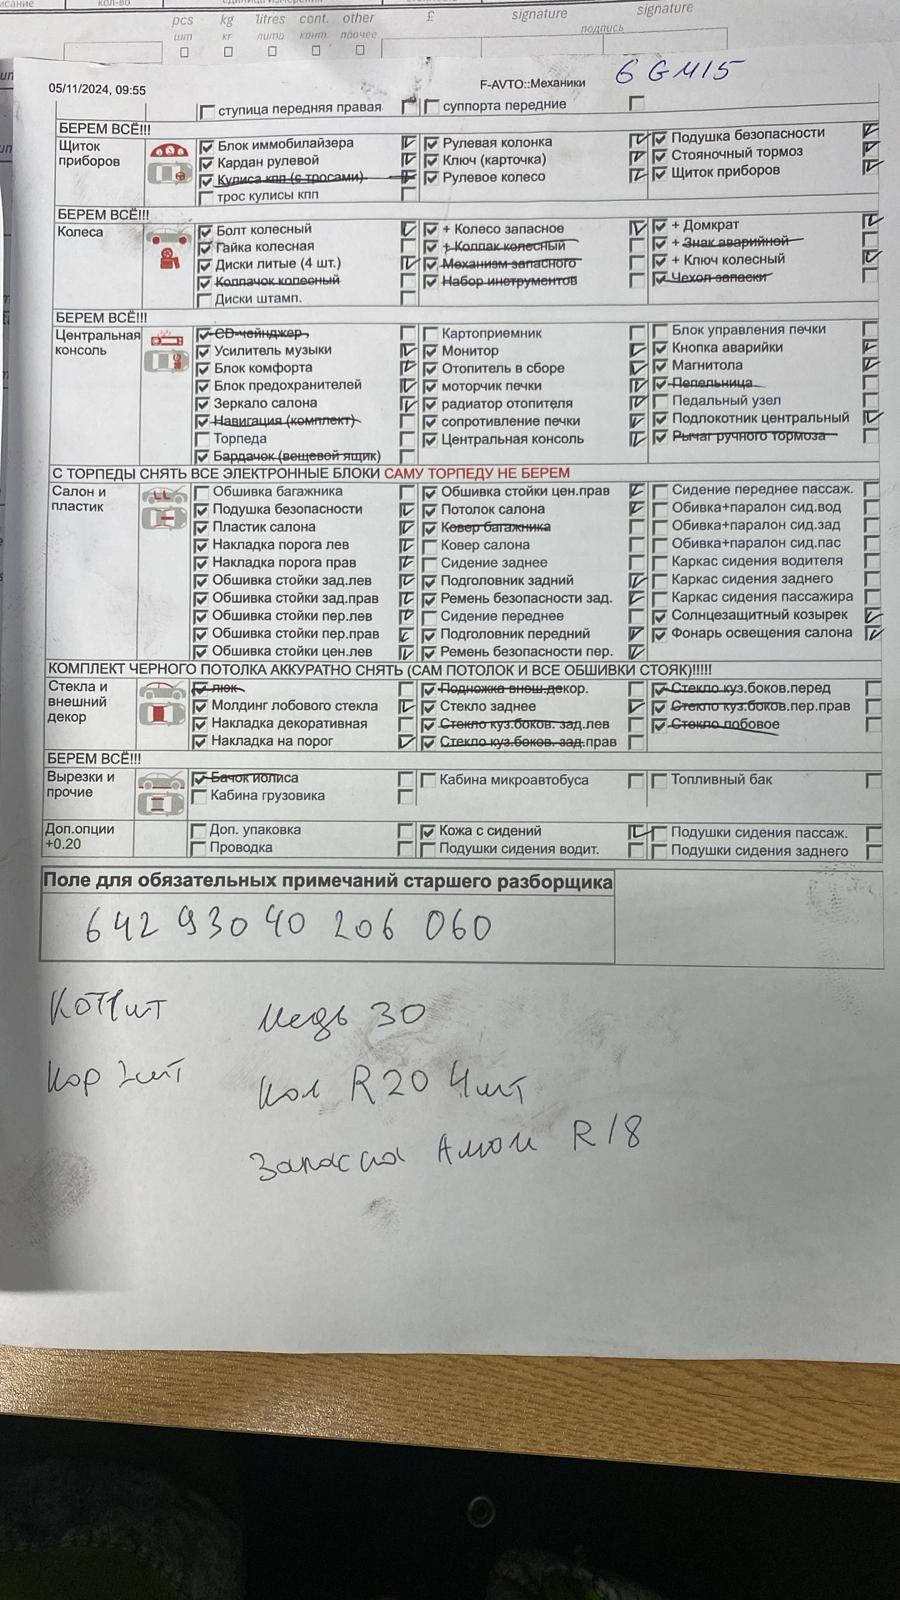 pcs kg litres cont. other £ signature signature
шт кг литр конт. прочее подпись
05/11/2024, 09:55 F-AVTO::Механики 6 GM15
ступица передняя правая суппорта передние
БЕРЕМ ВСЁ!!!
Щиток приборов Блок иммобилайзера Рулевая колонка Подушка безопасности
Кардан рулевой Ключ (карточка) Стояночный тормоз
Кулиса кпп (с тросами) Рулевое колесо Щиток приборов
трос кулисы кпп
БЕРЕМ ВСЁ!!!
Колеса Болт колесный + Колесо запасное + Домкрат
Гайка колесная + Колпак колесный + Знак аварийной
Диски литые (4 шт.) Механизм запасного + Ключ колесный
Колпачок колесный Набор инструментов Чехол запаски
Диски штамп.
БЕРЕМ ВСЁ!!!
Центральная консоль CD-чейнджер Картоприемник Блок управления печки
Усилитель музыки Монитор Кнопка аварийки
Блок комфорта Отопитель в сборе Магнитола
Блок предохранителей моторчик печки Пепельница
Зеркало салона радиатор отопителя Педальный узел
Навигация (комплект) сопротивление печки Подлокотник центральный
Торпеда Центральная консоль Рычаг ручного тормоза
Бардачок (вещевой ящик)
С ТОРПЕДЫ СНЯТЬ ВСЕ ЭЛЕКТРОННЫЕ БЛОКИ САМУ ТОРПЕДУ НЕ БЕРЕМ
Салон и пластик Обшивка багажника Обшивка стойки цен.прав Сидение переднее пассаж.
Подушка безопасности Потолок салона Обивка+паралон сид.вод
Пластик салона Ковер багажника Обивка+паралон сид.зад
Накладка порога лев Ковер салона Обивка+паралон сид.пас
Накладка порога прав Сидение заднее Каркас сидения водителя
Обшивка стойки зад.лев Подголовник задний Каркас сидения заднего
Обшивка стойки зад.прав Ремень безопасности зад. Каркас сидения пассажира
Обшивка стойки пер.лев Сидение переднее Солнцезащитный козырек
Обшивка стойки пер.прав Подголовник передний Фонарь освещения салона
Обшивка стойки цен.лев Ремень безопасности пер.
КОМПЛЕКТ ЧЕРНОГО ПОТОЛКА АККУРАТНО СНЯТЬ (САМ ПОТОЛОК И ВСЕ ОБШИВКИ СТОЯК)!!!!!
Стекла и внешний декор люк Подножка внеш.декор. Стекло куз.боков.перед
Молдинг лобового стекла Стекло заднее Стекло куз.боков.пер.прав
Накладка декоративная Стекло куз.боков. зад.лев Стекло лобовое
Накладка на порог Стекло куз.боков. зад.прав
БЕРЕМ ВСЁ!!!
Вырезки и прочие Бачок йолиса Кабина микроавтобуса Топливный бак
Кабина грузовика
Доп.опции +0.20 Доп. упаковка Кожа с сидений Подушки сидения пассаж.
Проводка Подушки сидения водит. Подушки сидения заднего
Поле для обязательных примечаний старшего разборщика
642 930 40 206 060
Кот 1шт Медь 30
Кор 2шт Кол R20 4шт
Запаска R18